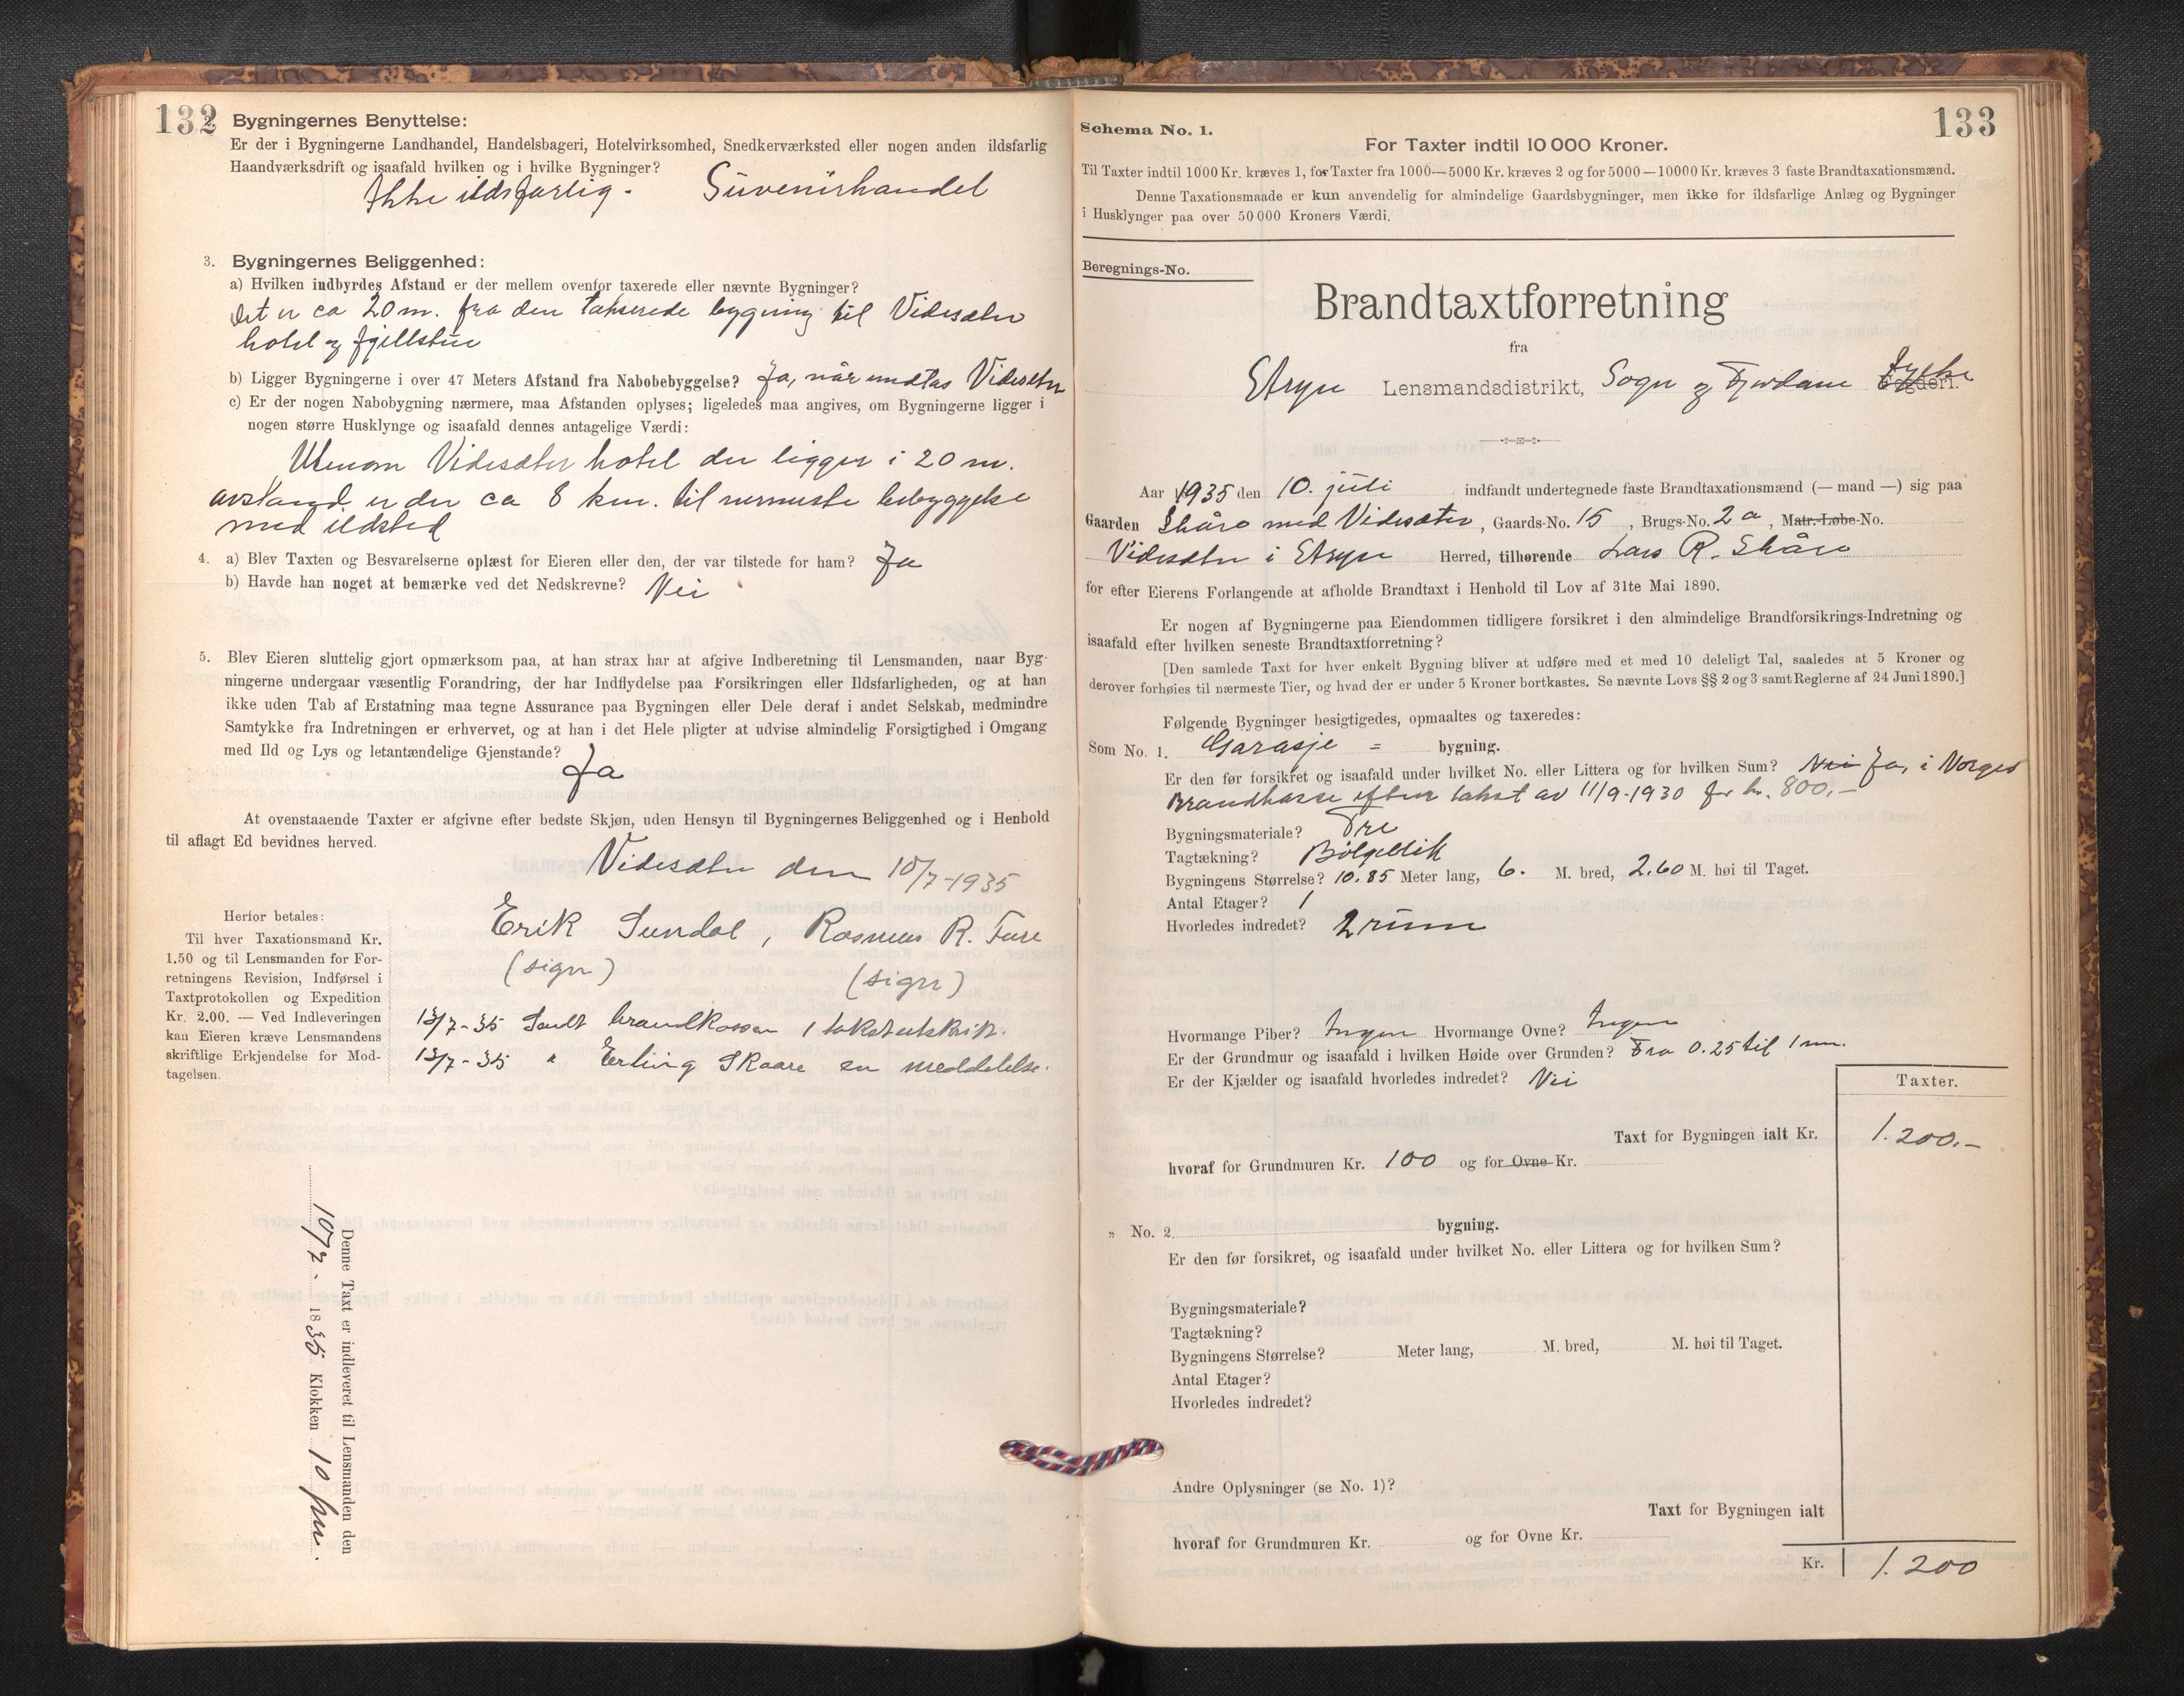 132
Bygningernes Benyttelse:
Er der i Bygningerne Landhandel, Handelsbageri, Hotelvirksomhed, Snedkerværksted eller nogen anden ildsfarlig
Haandværksdrift og isaafald hvilken og i hvilke Bygninger?
Ikke ildsfarlig. Suvenirhandel
3. Bygningernes Beliggenhed:
a) Hvilken indbyrdes Afstand er der mellem ovenfor taxerede eller nævnte Bygninger?
Det er ca 20 m. fra den takserede bygning til Videsæter
hotel og fjellstue
b) Ligger Bygningerne i over 47 Meters Afstand fra Nabobebyggelse? Ja, når undtas Videseter
c) Er der nogen Nabobygning nærmere, maa Afstanden oplyses; ligeledes maa angives, om Bygningerne ligger i
nogen større Husklynge og isaafald dennes antagelige Værdi:
Utenom Videsæter hotel der ligger i 20 m.
avstand er der ca 8 km. til nermeste bebyggelse
med ildsted
4. a) Blev Taxten og Besvarelserne oplæst for Eieren eller den, der var tilstede for ham? Ja
b) Havde han noget at bemærke ved det Nedskrevne? Nei
5. Blev Eieren sluttelig gjort opmærksom paa, at han strax har at afgive Indberetning til Lensmanden, naar Byg-
ningerne undergaar væsentlig Forandring, der har Indflydelse paa Forsikringen eller Ildsfarligheden, og at han
ikke uden Tab af Erstatning maa tegne Assurance paa Bygningen eller Dele deraf i andet Selskab, medmindre
Samtykke fra Indretningen er erhvervet, og at han i det Hele pligter at udvise almindelig Forsigtighed i Omgang
med Ild og Lys og letantændelige Gjenstande?
Ja
At ovenstaaende Taxter er afgivne efter bedste Skjøn, uden Hensyn til Bygningernes Beliggenhed og i Henhold
til aflagt Ed bevidnes herved.
Videsæter den 10/7-1935
Erik Sundal, Rasmus R. Fure
(sign) (sign)
Herfor betales:
Til hver Taxationsmand Kr.
1.50 og til Lensmanden for For-
retningens Revision, Indførsel i
Taxtprotokollen og Expedition
Kr. 2.00. — Ved Indleveringen
kan Eieren kræve Lensmandens
skriftlige Erkjendelse for Mod-
tagelsen.
13/7-35 Sendt brandkassen 1 takstutskrift.
13/7-35 " Erling Skaare en meddelelse.
Denne Taxt er indleveret til Lensmanden den
10/7. 1835 Klokken 10 fm.
133
Schema No. 1.
For Taxter indtil 10 000 Kroner.
Til Taxter indtil 1000 Kr. kræves 1, for Taxter fra 1000—5000 Kr. kræves 2 og for 5000—10000 Kr. kræves 3 faste Brandtaxationsmænd.
Denne Taxationsmaade er kun anvendelig for almindelige Gaardsbygninger, men ikke for ildsfarlige Anlæg og Bygninger
i Husklynger paa over 50 000 Kroners Værdi.
Beregnings-No.
Brandtaxtforretning
fra
Stryn Lensmandsdistrikt, Sogn og Fjordane Fylke Fogderi.
Aar 1935 den 10. juli indfandt undertegnede faste Brandtaxationsmænd (— mand —) sig paa
Gaarden Skåre med Videsæter, Gaards-No. 15, Brugs-No. 2 a, Matr.-Løbe-No.
Videsæter i Stryn Herred, tilhørende Lars R. Skåre
for efter Eierens Forlangende at afholde Brandtaxt i Henhold til Lov af 31te Mai 1890.
Er nogen af Bygningerne paa Eiendommen tidligere forsikret i den almindelige Brandforsikrings-Indretning og
isaafald efter hvilken seneste Brandtaxtforretning?
[Den samlede Taxt for hver enkelt Bygning bliver at udføre med et med 10 deleligt Tal, saaledes at 5 Kroner og
derover forhøies til nærmeste Tier, og hvad der er under 5 Kroner bortkastes. Se nævnte Lovs §§ 2 og 3 samt Reglerne af 24 Juni 1890.]
Følgende Bygninger besigtigedes, opmaaltes og taxeredes:
Som No. 1. Garasje = bygning.
Er den før forsikret og isaafald under hvilket No. eller Littera og for hvilken Sum? Nei Ja, i Norges
Brandkasse efter takst av 11/9-1930 for kr. 800,-
Bygningsmateriale? Tre
Tagtækning? Bølgeblik
Bygningens Størrelse? 10.85 Meter lang, 6. M. bred, 2.60 M. høi til Taget.
Antal Etager? 1
Hvorledes indredet? 2 rum
Hvormange Piber? Ingen Hvormange Ovne? Ingen
Er der Grundmur og isaafald i hvilken Høide over Grunden? Fra 0.25 til 1 m.
Er der Kjælder og isaafald hvorledes indredet? Nei
Taxter.
Taxt for Bygningen ialt Kr. 1.200.-
hvoraf for Grundmuren Kr. 100 og for Ovne Kr.
" No. 2 bygning.
Er den før forsikret, og isaafald under hvilket No. eller Littera og for hvilken Sum?
Bygningsmateriale?
Tagtækning?
Bygningens Størrelse? Meter lang, M. bred, M. høi til Taget.
Antal Etager?
Hvorledes indredet?
Andre Oplysninger (se No. 1)?
Taxt for Bygningen ialt
hvoraf for Grundmuren Kr. og for Ovne Kr.
Kr. 1.200